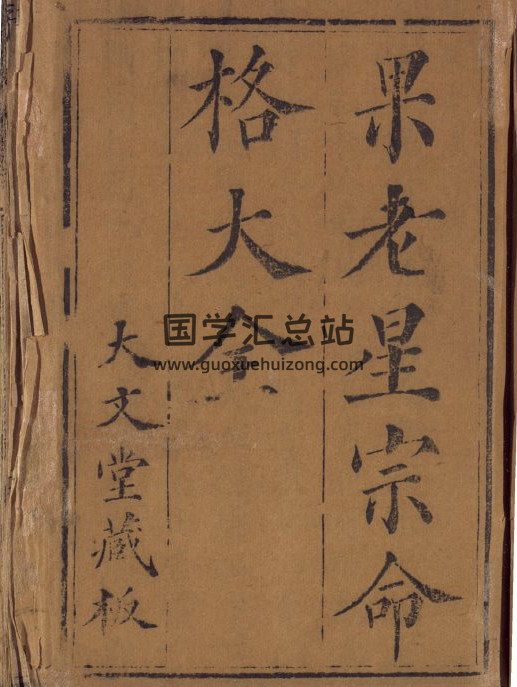 果老星宗命
格大全
大文堂藏板
国学汇总站
www.guoxuehuizong.com